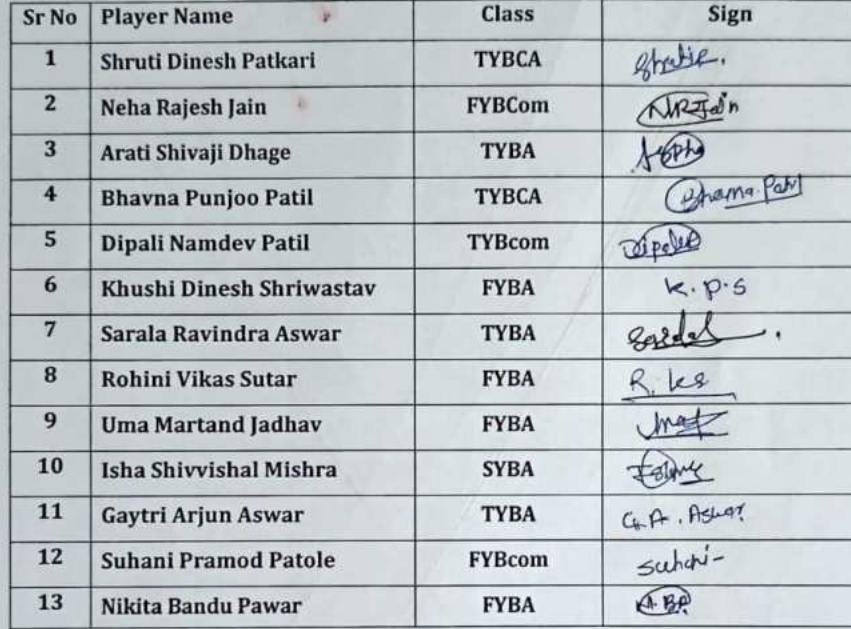 Sr No Player Name Class Sign
1 Shruti Dinesh Patkari TYBCA
2 Neha Rajesh Jain FYBCom NRJain
3 Arati Shivaji Dhage TYBA
4 Bhavna Punjoo Patil TYBCA Bhavna.Patil
5 Dipali Namdev Patil TYBcom Dipali
6 Khushi Dinesh Shriwastav FYBA K.P.S
7 Sarala Ravindra Aswar TYBA
8 Rohini Vikas Sutar FYBA
9 Uma Martand Jadhav FYBA
10 Isha Shivvishal Mishra SYBA
11 Gaytri Arjun Aswar TYBA G.A. Aswar
12 Suhani Pramod Patole FYBcom Suhani-
13 Nikita Bandu Pawar FYBA